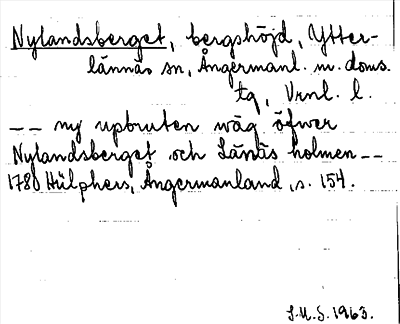 Nylandsberget, bergshöjd, Ytter-
lännäs sn, Ångermanl. m. doms.
tg, Vrnl. l.
-- ny upbruten wäg öfwer
Nylandsberget och Länäs holmen --
1780 Hülphers, Ångermanland, s. 154.
S.M.S. 1963.